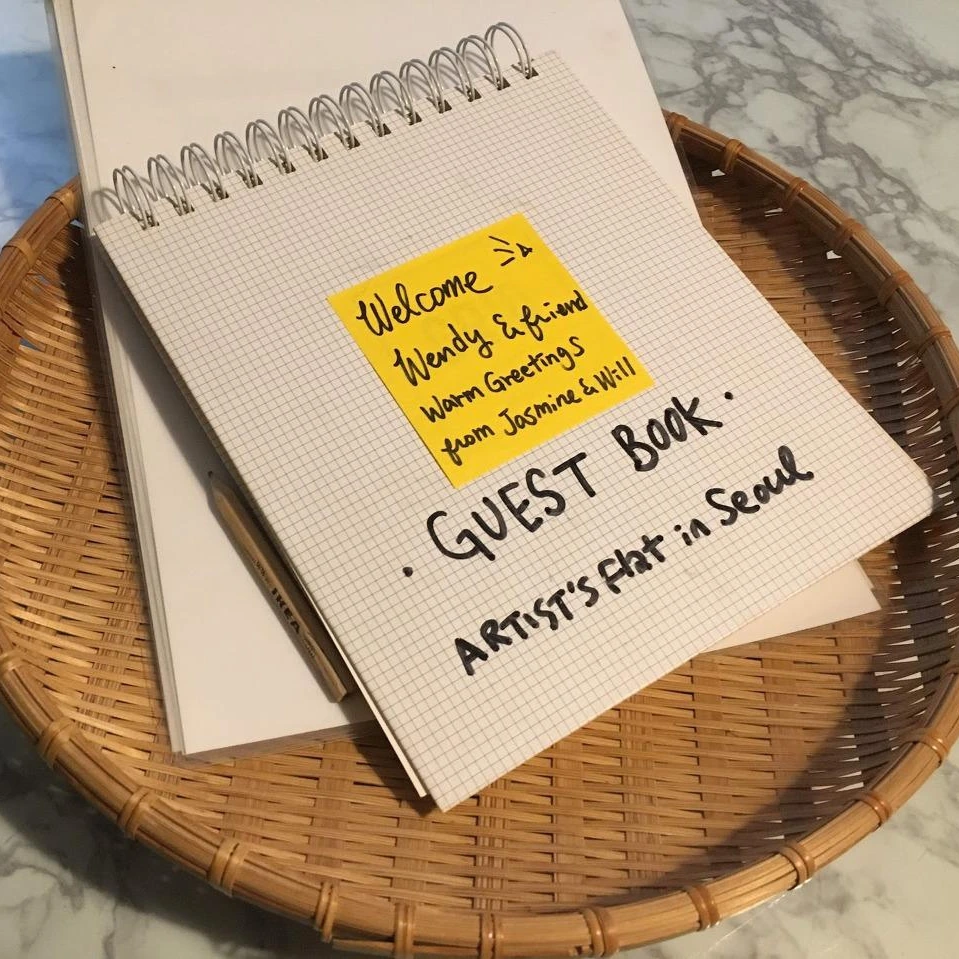 Welcome
Wendy & friend
Warm Greetings
from Jasmine & Will
· GUEST BOOK ·
ARTIST'S Flat in Seoul
IKEA